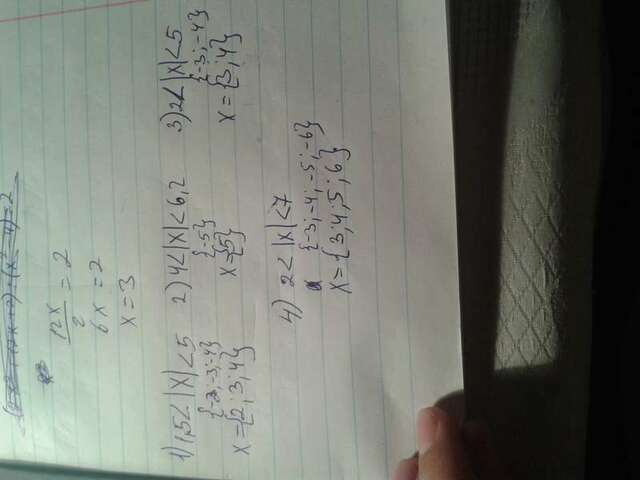 12x/2 = 2
6x = 2
x = 3
1) 1,5 < |x| < 5
{-2; -3; -4}
x = {2; 3; 4}
2) 4 < |x| < 6,2
{-5}
x = {5}
3) 2 < |x| < 5
{-3; -4}
x = {3; 4}
4) 2 < |x| < 7
{-3; -4; -5; -6}
x = {3; 4; 5; 6}